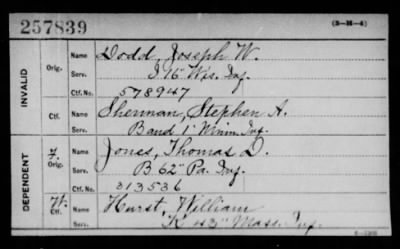 257839 (3-H-4)
INVALID
DEPENDENT
Orig. Name Dodd, Joseph W.
Serv. I 16" Wis. Inf.
Ctf. No. 578947
Ctf. Name Sherman, Stephen A.
Serv. Band 1" Minn. Inf.
F. Orig. Name Jones, Thomas D.
Serv. B 62" Pa. Inf.
Ctf. No. 313536
W. Ctf. Name Hurst, William
Serv. K 43" Mass. Inf.